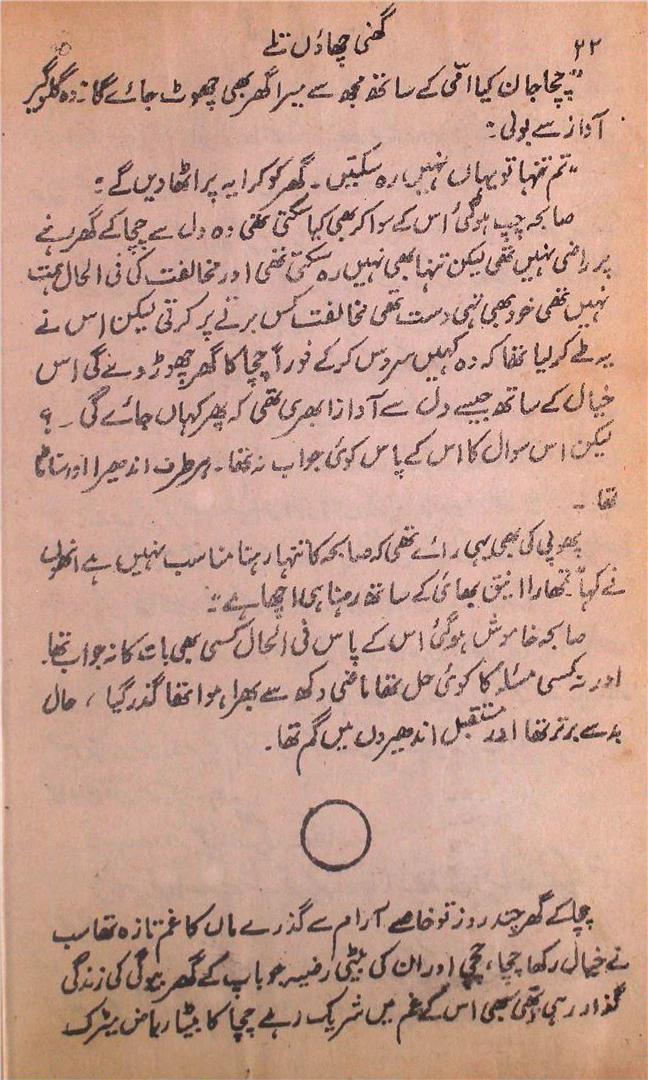 ۲۲
گھنی چھاؤں تلے
"چچا جان کیا امّی کے ساتھ مجھ سے میرا گھر بھی چھوٹ جائے گا" وہ گلوگیر
آواز سے بولی :
"تم تنہا تو یہاں نہیں رہ سکتیں ۔ گھر کو کرایہ پر اٹھا دیں گے :
صابحہ چپ ہوگئی اس کے سوا کر بھی کیا سکتی تھی وہ دل سے چچا کے گھر رہنے
پر راضی نہیں تھی لیکن تنہا بھی نہیں رہ سکتی تھی اور مخالفت کی فی الحال ہمت
نہیں تھی خود بھی تہی دست تھی مخالفت کس برتے پر کرتی لیکن اس نے
یہ طے کر لیا تھا کہ وہ کہیں سروس کر کے فوراً چچا کا گھر چھوڑ دے گی اس
خیال کے ساتھ جیسے دل سے آواز ابھری تھی کہ پھر کہاں جائے گی ۔ ؟
لیکن اس سوال کا اس کے پاس کوئی جواب نہ تھا ۔ ہر طرف اندھیرا اور سناٹا
تھا ۔
پھوپی کی بھی یہی رائے تھی کہ صابحہ کا تنہا رہنا مناسب نہیں ہے انھوں
نے کہا "تمھارا انیق بھائی کے ساتھ رہنا ہی اچھا ہے :
صابحہ خاموش ہوگئی اس کے پاس فی الحال کسی بھی بات کا نہ جواب تھا۔
اور نہ کسی مسئلہ کا کوئی حل تھا ماضی دکھ سے بھرا ہوا تھا گذر گیا ، حال
بد سے بدتر تھا اور مستقبل اندھیروں میں گم تھا ۔
چچا کے گھر چند روز تو خاصے آرام سے گذرے ماں کا غم تازہ تھا سب
نے خیال رکھا چچا، چچی اور ان کی بیٹی رفیسہ جو باپ کے گھر بیوگی کی زندگی
گذار رہی تھی سبھی اس کے غم میں شریک رہے چچا کا بیٹا ریاض میٹرک